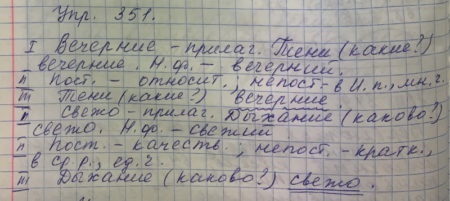 Упр. 351.
I Вечерние - прилаг. Тени (какие?)
вечерние. Н.ф. - вечерний.
II Пост. - относит.; непост - в И.п., мн.ч.
III Тени (какие?) вечерние.
II свежо - прилаг. Дыхание (каково?)
свежо. Н.ф. - свежий
II Пост. - качеств.; непост. - кратк.,
в ср.р., ед.ч.
III Дыхание (каково?) свежо.